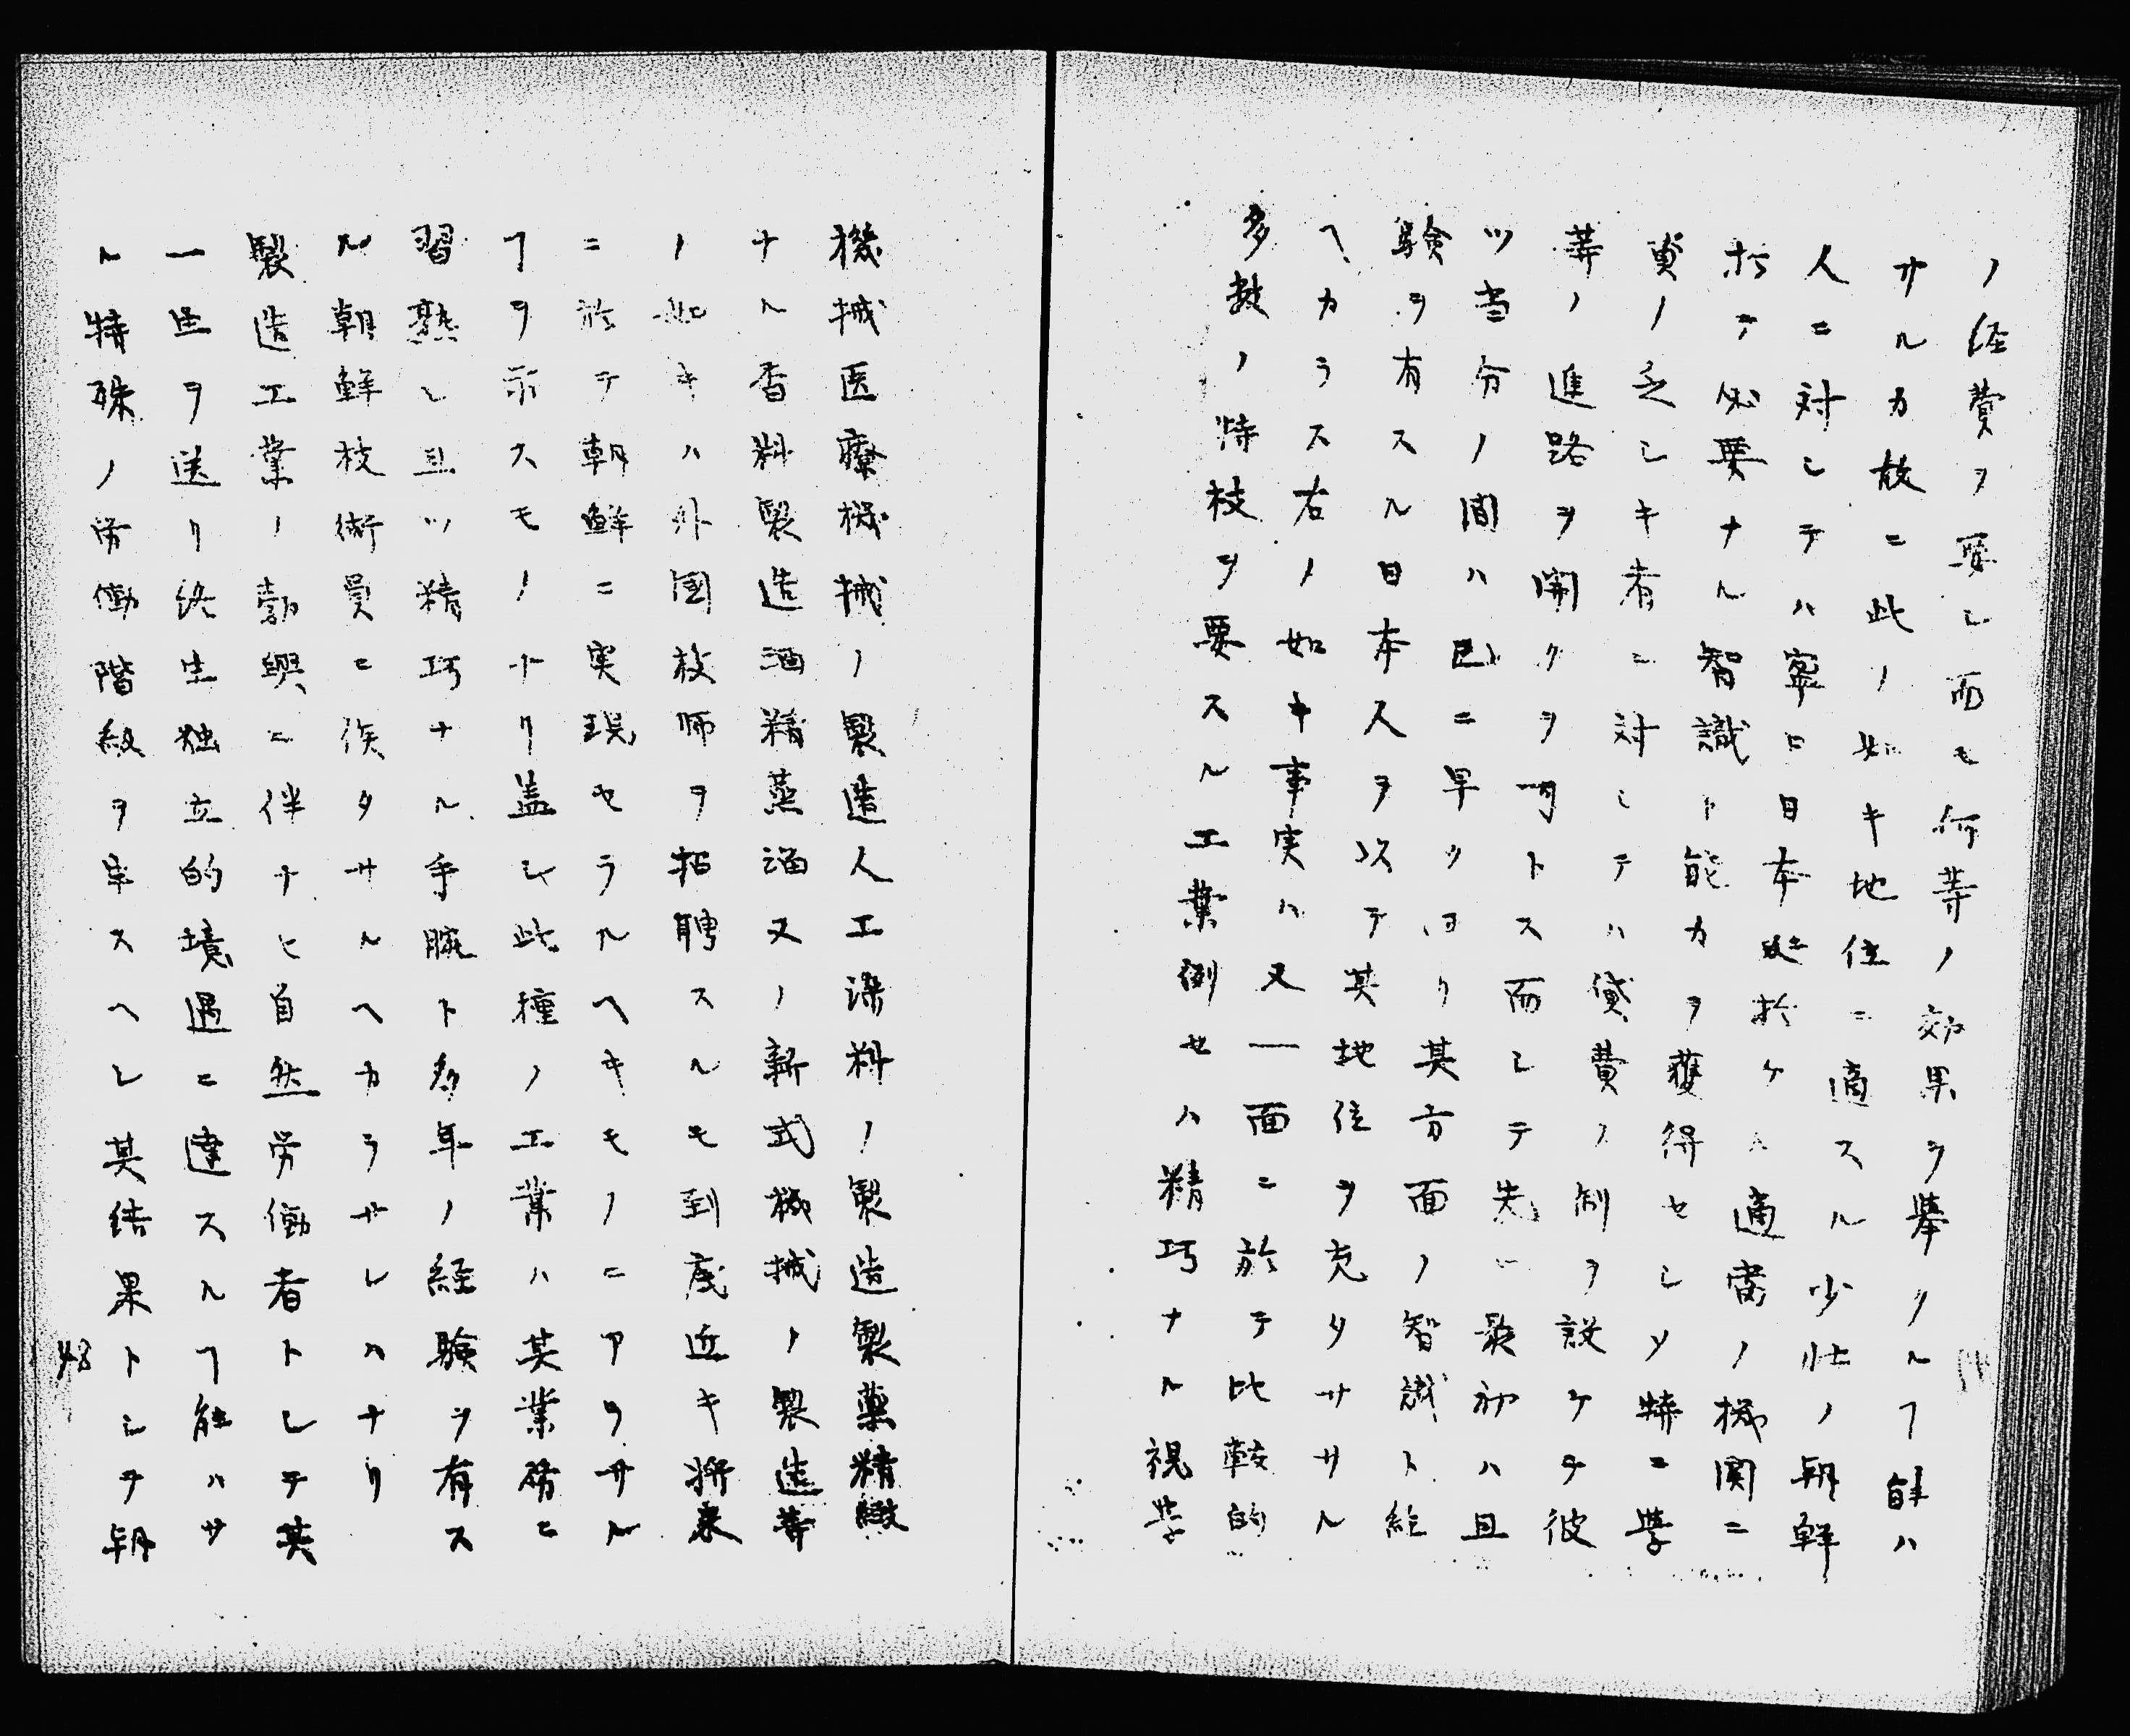 ノ経費ヲ要シ而モ何等ノ効果ヲ挙クルヿ能ハ
サルカ故ニ此ノ如キ地位ニ適スル少壮ノ朝鮮
人ニ対シテハ寧ロ日本ニ於ケル適當ノ機関ニ
於テ必要ナル智識ト能力ヲ獲得セシメ特ニ學
資ノ乏シキ者ニ対シテハ貸費ノ制ヲ設ケテ彼
等ノ進路ヲ開クヲ可トス而シテ先ツ最初ハ且
ツ当分ノ間ハ已ニ早クヨリ其方面ノ智識ト経
験ヲ有スル日本人ヲ以テ其地位ヲ充タサザル
ヘカラス右ノ如キ事実ハ又一面ニ於テ比較的
多数ノ特技ヲ要スル工業例セハ精巧ナル視學
機械医療機械ノ製造人工染料ノ製造製薬精緻
ナル香料製造酒精蒸溜又ノ新式機械ノ製造等
ノ如キハ外国技師ヲ招聘スルモ到底近キ将来
ニ於テ朝鮮ニ実現セラルヘキモノニアラサル
ヿヲ示スモノナリ盖シ此種ノ工業ハ其業務ニ
習熟シ且ツ精巧ナル手腕ト多年ノ経験ヲ有ス
ル朝鮮技術員ニ俟タサルヘカラサレハナリ
製造工業ノ勃興ニ伴ナヒ自然労働者トシテ其
一生ヲ送リ終生独立的境遇ニ達スルヿ能ハサ
ル特殊ノ労働階級ヲ生スヘシ其結果トシテ朝
48